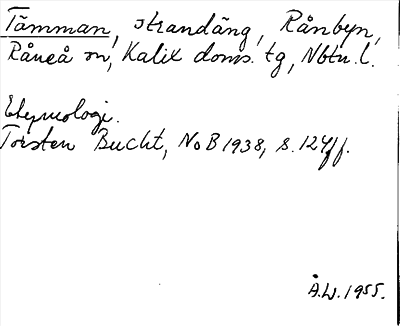 Tämman, strandäng, Rånbyn,
Råneå sn, Kalix doms. tg, Nbtn. l.
Etymologi.
Torsten Bucht, NoB 1938, s. 124ff.
Å.W. 1955.